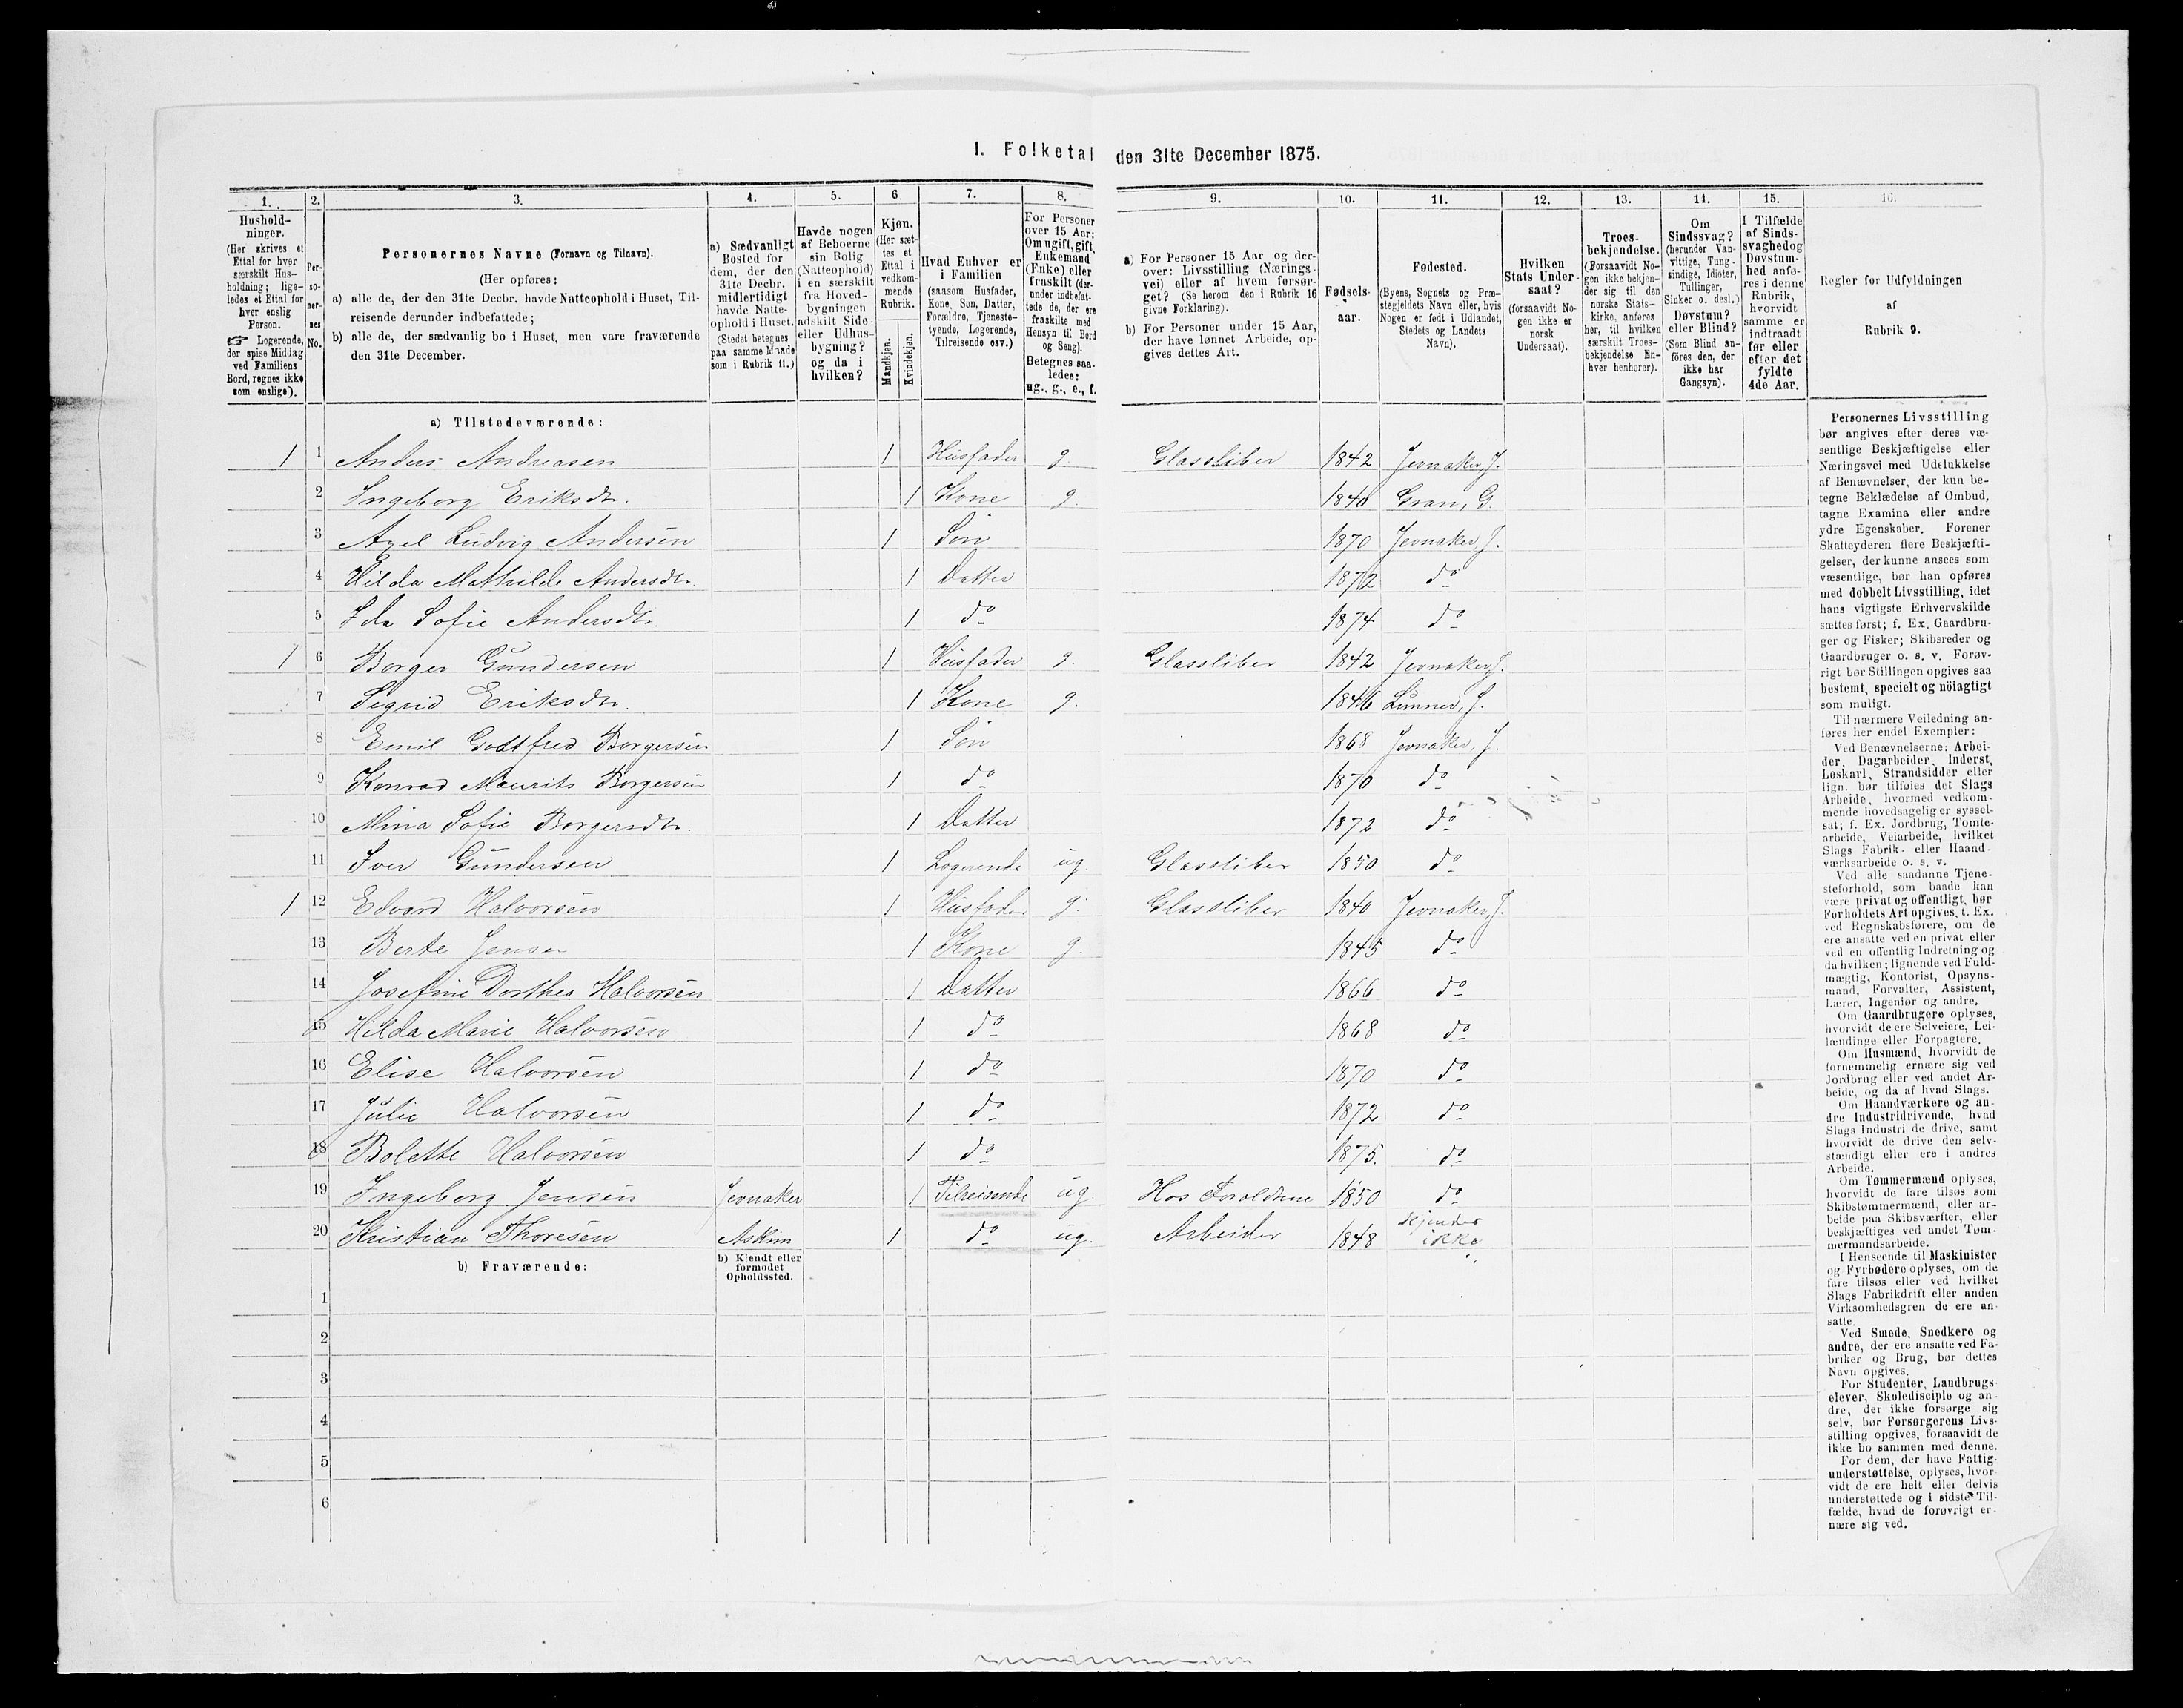 I. Folketal den 31te December 1875.
1. 2. 3. 4. 5. 6. 7. 8. 9. 10. 11. 12. 13. 14. 15. 16.
Hushold-
ninger.
(Her skrives et
Ettal for hver
særskilt Hus-
holdning; lige-
ledes et Ettal for
hver enslig
Person.
☞ Logerende,
der spise Middag
ved Familiens
Bord, regnes ikke
som enslige).
Per-
so-
ner-
nes
No.
Personernes Navne (Fornavn og Tilnavn).
(Her opføres:
a) alle de, der den 31te Decbr. havde Natteophold i Huset, Til-
reisende derunder indbefattede;
b) alle de, der sædvanlig bo i Huset, men vare fraværende
den 31te December.
a) Sædvanligt
Bosted for
dem, der den
31te Decbr.
midlertidigt
havde Natte-
ophold i Huset.
(Stedet betegnes
paa samme Maade
som i Rubrik 11.)
Havde nogen
af Beboerne
sin Bolig
(Natteophold)
i en særskilt
fra Hoved-
bygningen
adskilt Side-
eller Udhus-
bygning?
og da i
hvilken?
Kjøn.
(Her sæt-
tes et
Ettal i
vedkom-
mende
Rubrik.
Mandkjøn.
Kvindekjøn.
Hvad Enhver er
i Familien
(saasom Husfader,
Kone, Søn, Datter,
Forældre, Tjeneste-
tyende, Logerende,
Tilreisende osv.)
For Personer
over 15 Aar:
Om ugift, gift,
Enkemand
(Enke) eller
fraskilt (der-
under indbefat-
tede de, der ere
fraskilte med
Hensyn til Bord
og Seng).
Betegnes saa-
ledes:
ug., g., e., f.
a) For Personer 15 Aar og der-
over: Livsstilling (Nærings-
vei) eller af hvem forsør-
get? (Se herom den i Rubrik 16
givne Forklaring).
b) For Personer under 15 Aar,
der have lønnet Arbeide, op-
gives dettes Art.
Fødsels-
aar.
Fødested.
(Byens, Sognets og Præ-
stegjeldets Navn eller, hvis
Nogen er født i Udlandet,
Stedets og Landets
Navn).
Hvilken
Stats Under-
saat?
(forsaavidt No-
gen ikke er
norsk
Undersaat).
Troes-
bekjendelse.
(Forsaavidt No-
gen ikke bekjen-
der sig til den
norske Stats-
kirke, anføres
her, til hvilken
særskilt Troes-
bekjendelse En-
hver henhører).
Om
Sindssvag?
(herunder Van-
vittige, Tung-
sindige, Idioter,
Tullinger,
Sinker o. desl.)
Døvstum?
eller Blind?
(Som Blind an-
føres den, der
ikke har
Gangsyn).
I Tilfælde
af Sinds-
svaghed og
Døvstum-
hed anfø-
res i denne
Rubrik,
hvorvidt
samme er
indtraadt
før eller
efter det
fyldte
4de Aar.
Regler for Udfyldningen
af
Rubrik 9.
a) Tilstedeværende:
1 1 Anders Andreasen 1 Husfader g. Glassliber 1842 Jevnaker, J.
2 Ingeborg Eriksdtr. 1 Kone g. 1840 Gran, G.
3 Axel Ludvig Andersen 1 Søn 1870 Jevnaker J.
4 Hilda Mathilde Andersdtr. 1 Datter 1872 do
5 Ida Sofie Andersdtr. 1 do 1874 do
1 6 Borger Gundersen 1 Husfader g. Glassliber 1842 Jevnaker, J.
7 Sigrid Eriksdtr. 1 Kone g. 1846 Lunner, J.
8 Emil Godtfred Borgersen 1 Søn 1868 Jevnaker, J.
9 Konrad Maurits Borgersen 1 do 1870 do
10 Mina Sofie Borgersdtr. 1 Datter 1872 do
11 Iver Gundersen 1 Logerende ug. Glassliber 1850 do
1 12 Edvard Halvorsen 1 Husfader g. Glassliber 1840 Jevnaker, J.
13 Berte Jensen 1 Kone g. 1845 do
14 Josefine Dorthea Halvorsen 1 Datter 1866 do
15 Hilda Marie Halvorsen 1 do 1868 do
16 Elise Halvorsen 1 do 1870 do
17 Julie Halvorsen 1 do 1872 do
18 Bolette Halvorsen 1 do 1875. do
19 Ingeborg Jensen Jevnaker 1 Tilreisende ug. Hos Foreldrene 1850 do
20 Kristian Thoresen Askim 1 do ug. Arbeider 1848 kjendes ikke
b) Fraværende:
b) Kjendt eller
formodet
Opholdssted.
1
2
3
4
5
6
Personernes Livsstilling
bør angives efter deres væ-
sentlige Beskjæftigelse eller
Næringsvei med Udelukkelse
af Benævnelser, der kun be-
tegne Beklædelse af Ombud,
tagne Examina eller andre
ydre Egenskaber. Forener
Skatteyderen flere Beskjæfti-
gelser, der kunne ansees som
væsentlige, bør han opføres
med dobbelt Livsstilling, idet
hans vigtigste Erhvervskilde
sættes først; f. Ex. Gaardbru-
ger og Fisker; Skibsreder og
Gaardbruger o. s. v. Forøv-
rigt bør Stillingen opgives saa
bestemt, specielt og nöiagtigt
som muligt.
Til nærmere Veiledning an-
føres her endel Exempler:
Ved Benævnelserne: Arbei-
der, Dagarbeider, Inderst,
Løskarl, Strandsidder eller
lign. bør tilføies det Slags
Arbeide, hvormed vedkom-
mende hovedsagelig er syssel-
sat; f. Ex. Jordbrug, Tomte-
arbeide, Veiarbeide, hvilket
Slags Fabrik- eller Haand-
værksarbeide o. s. v.
Ved alle saadanne Tjene-
steforhold, som baade kan
være privat og offentligt, bør
Forholdets Art opgives, t. Ex.
ved Regnskabsførere, om de
ere ansatte ved en privat eller
ved en offentlig Indretning og
da hvilken; lignende ved Fuld-
mægtig, Kontorist, Opsyns-
mand, Forvalter, Assistent,
Lærer, Ingeniør og andre.
Om Gaardbrugere oplyses,
hvorvidt de ere Selveiere, Lei-
lændinge eller Forpagtere.
Om Husmænd, hvorvidt de
fornemmelig ernære sig ved
Jordbrug eller ved andet Ar-
beide, og da af hvad Slags.
Om Haandværkere og an-
dre Industridrivende, hvad
Slags Industri de drive, samt
hvorvidt de drive den selv-
stændigt eller ere i andres
Arbeide.
Om Tømmermænd oplyses,
hvorvidt de fare tilsøs som
Skibstømmermænd, eller ar-
beide paa Skibsværfter, eller
beskjæftiges ved andet Tøm-
mermandsarbeide.
I Henseende til Maskinister
og Fyrbødere oplyses, om de
fare tilsøs eller ved hvilket
Slags Fabrikdrift eller anden
Virksomhedsgren de ere an-
satte.
Ved Smede, Snedkere og
andre, der ere ansatte ved Fa-
briker og Brug, bør dettes
Navn opgives.
For Studenter, Landbrugs-
elever, Skoledisciple og an-
dre, der ikke forsørge sig
selv, bør Forsørgerens Livs-
stilling opgives, forsaavidt de
ikke bo sammen med denne.
For dem, der have Fattig-
understøttelse, oplyses, hvor-
vidt de ere helt eller delvis
understøttede og i sidste Til-
fælde, hvad de forøvrigt er-
nære sig ved.